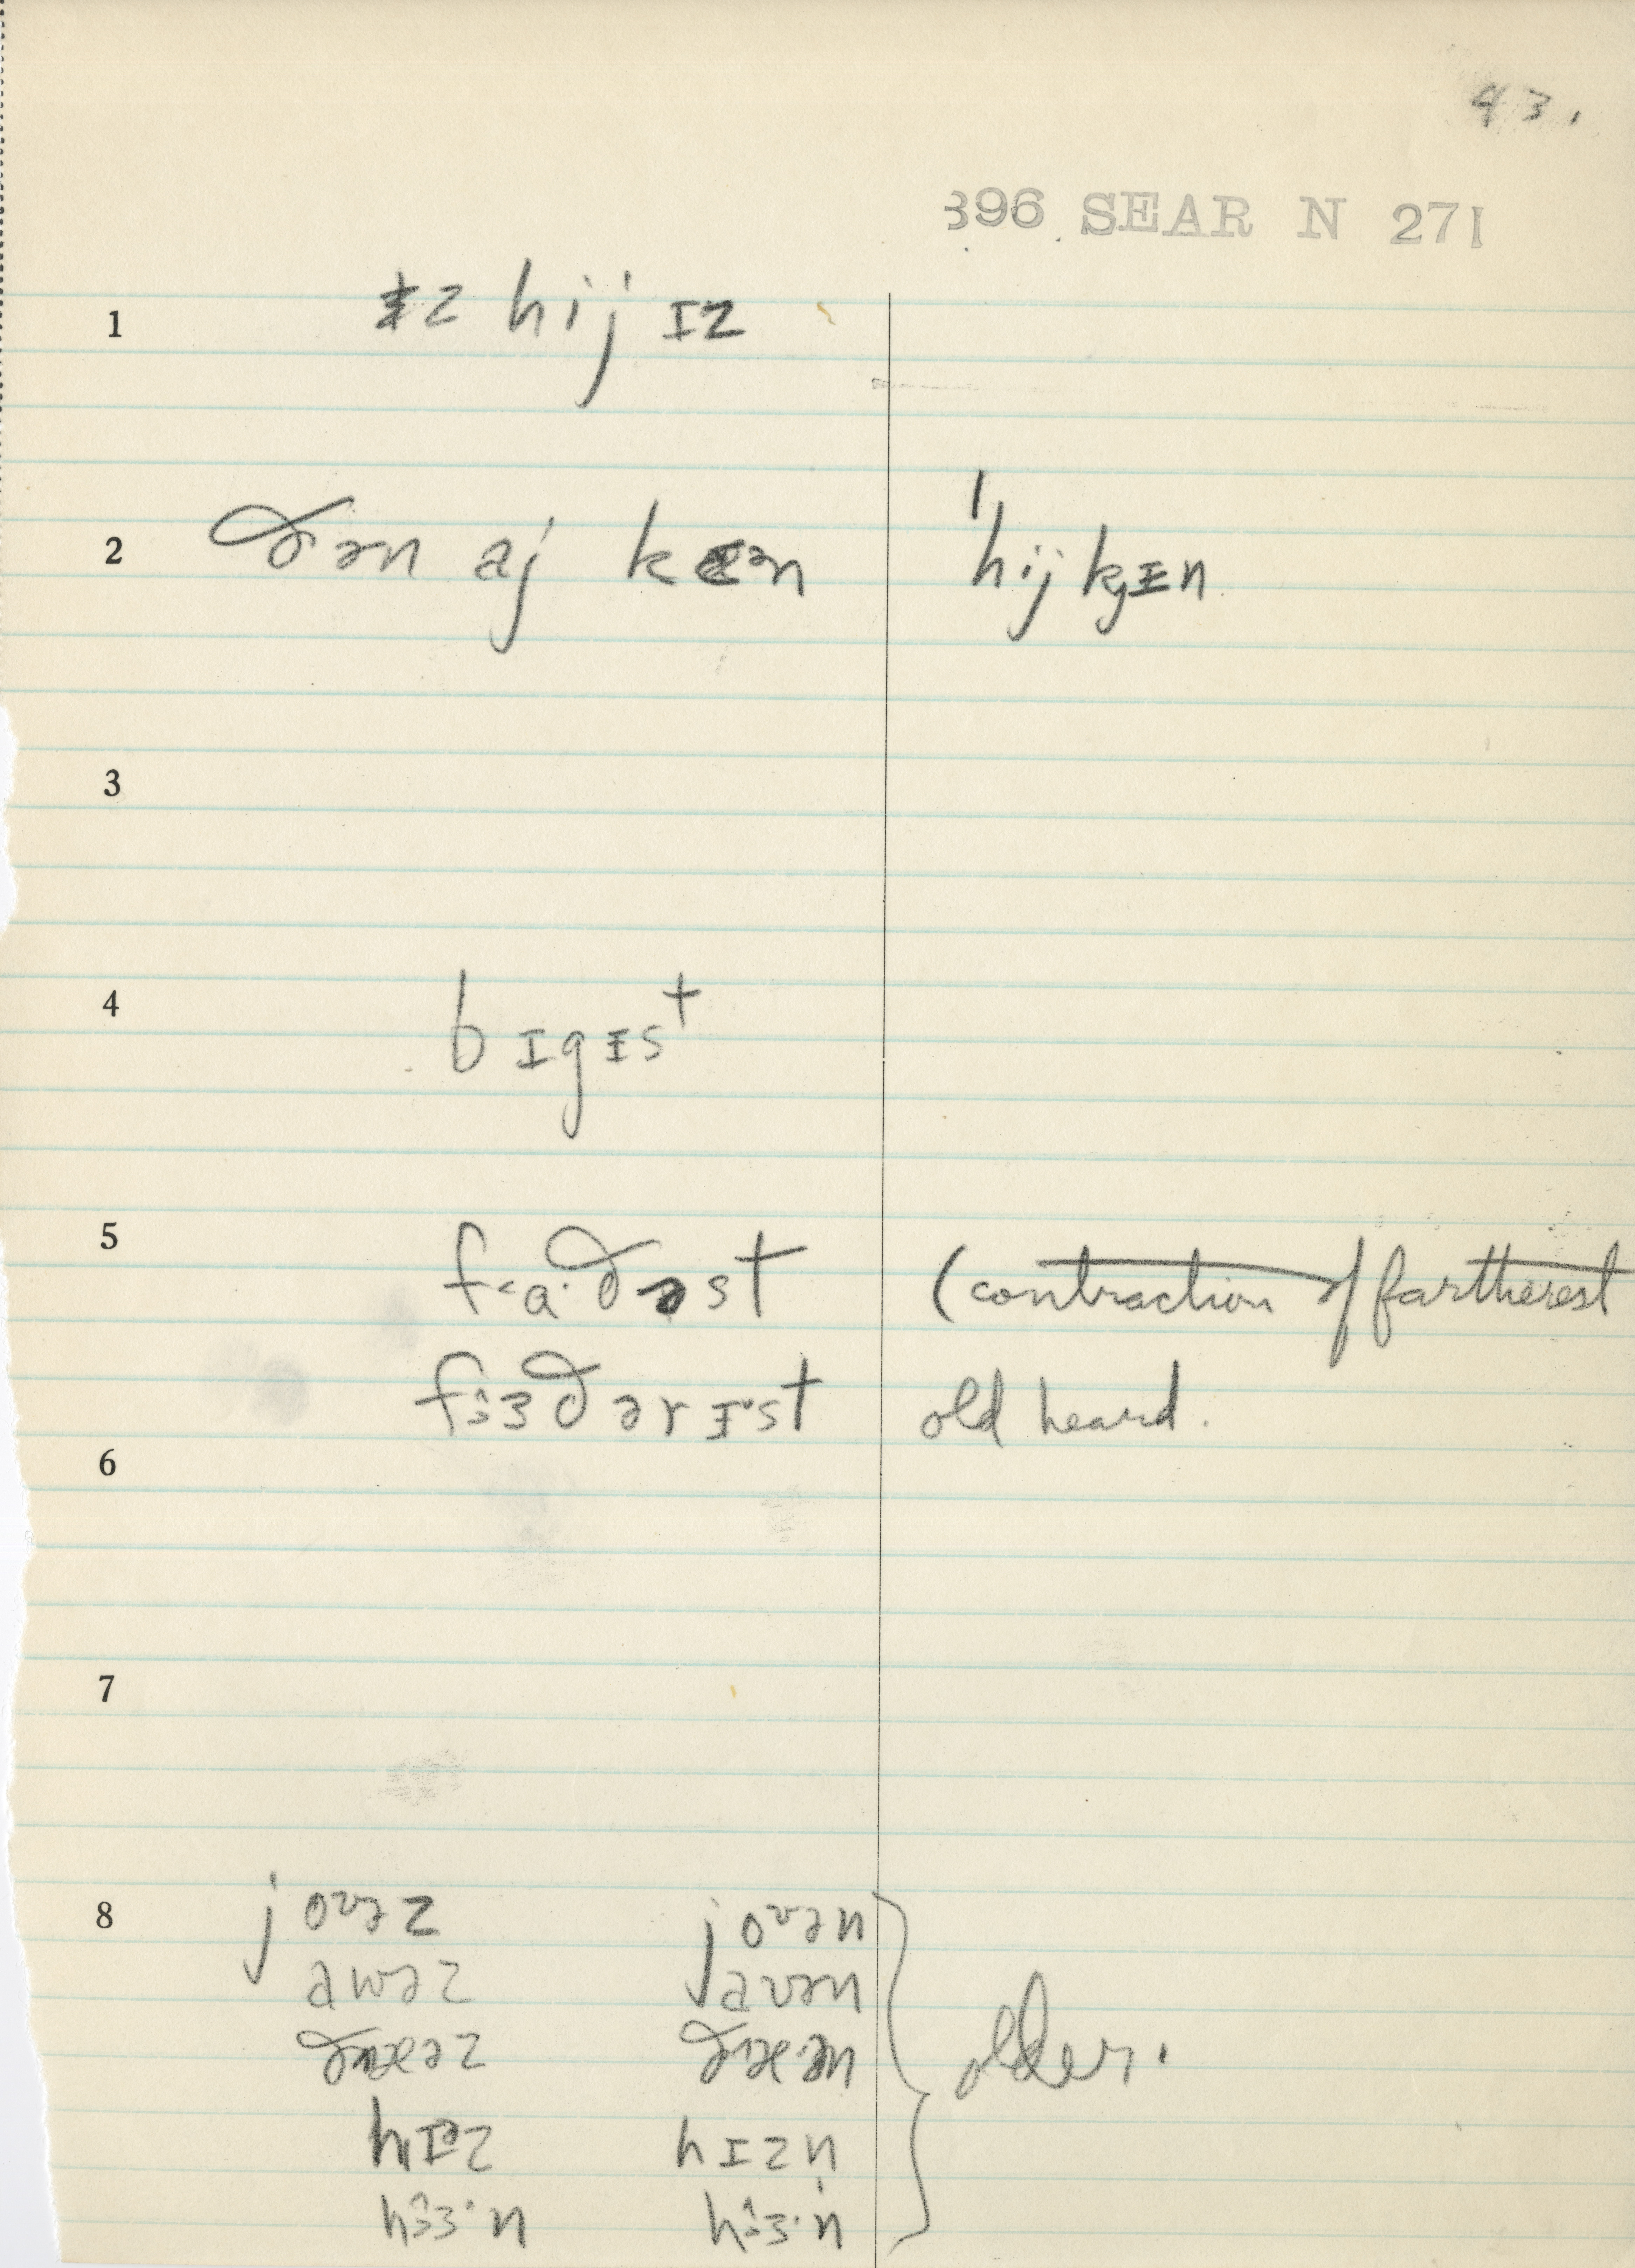 43.
396 SEAR N 271
1 ɨz hij ɪz
2 ðən aj kɛən 'hij kjɪn
3
4 bɪgɨst
5 f<a·ðəst (contraction of fartherest
fɜðərɪst old heard.
6
7
8 joʊəz joʊən
awəz avən
ðɛəz ðɛən
hɪz hɪzn older.
hɜ·n hɜ·n